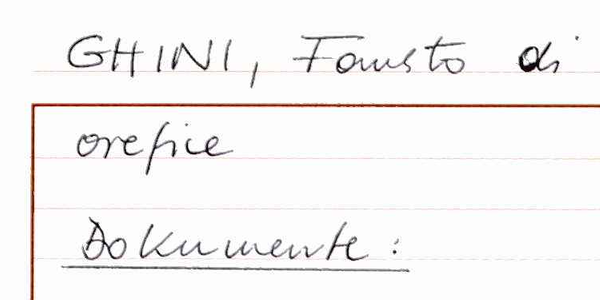 GHINI, Fausto di
orefice
Dokumente: